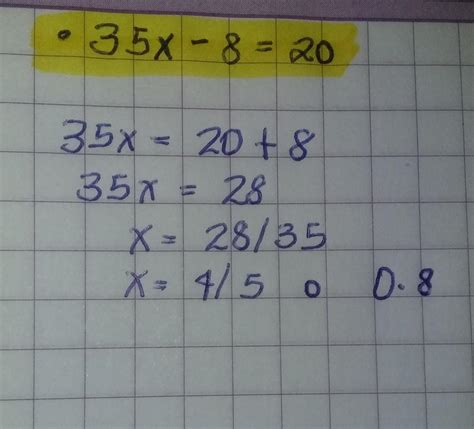 • 35x - 8 = 20
35x = 20 + 8
35x = 28
x = 28/35
x = 4/5 o 0.8